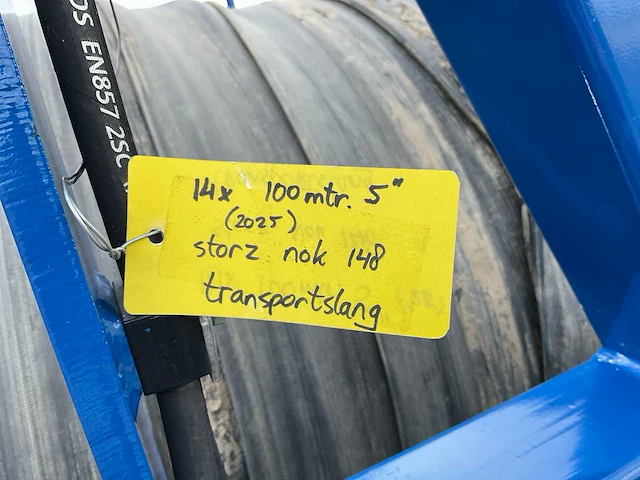 OS EN857 2SC
14x 100mtr. 5"
(2025)
storz nok 148
transportslang